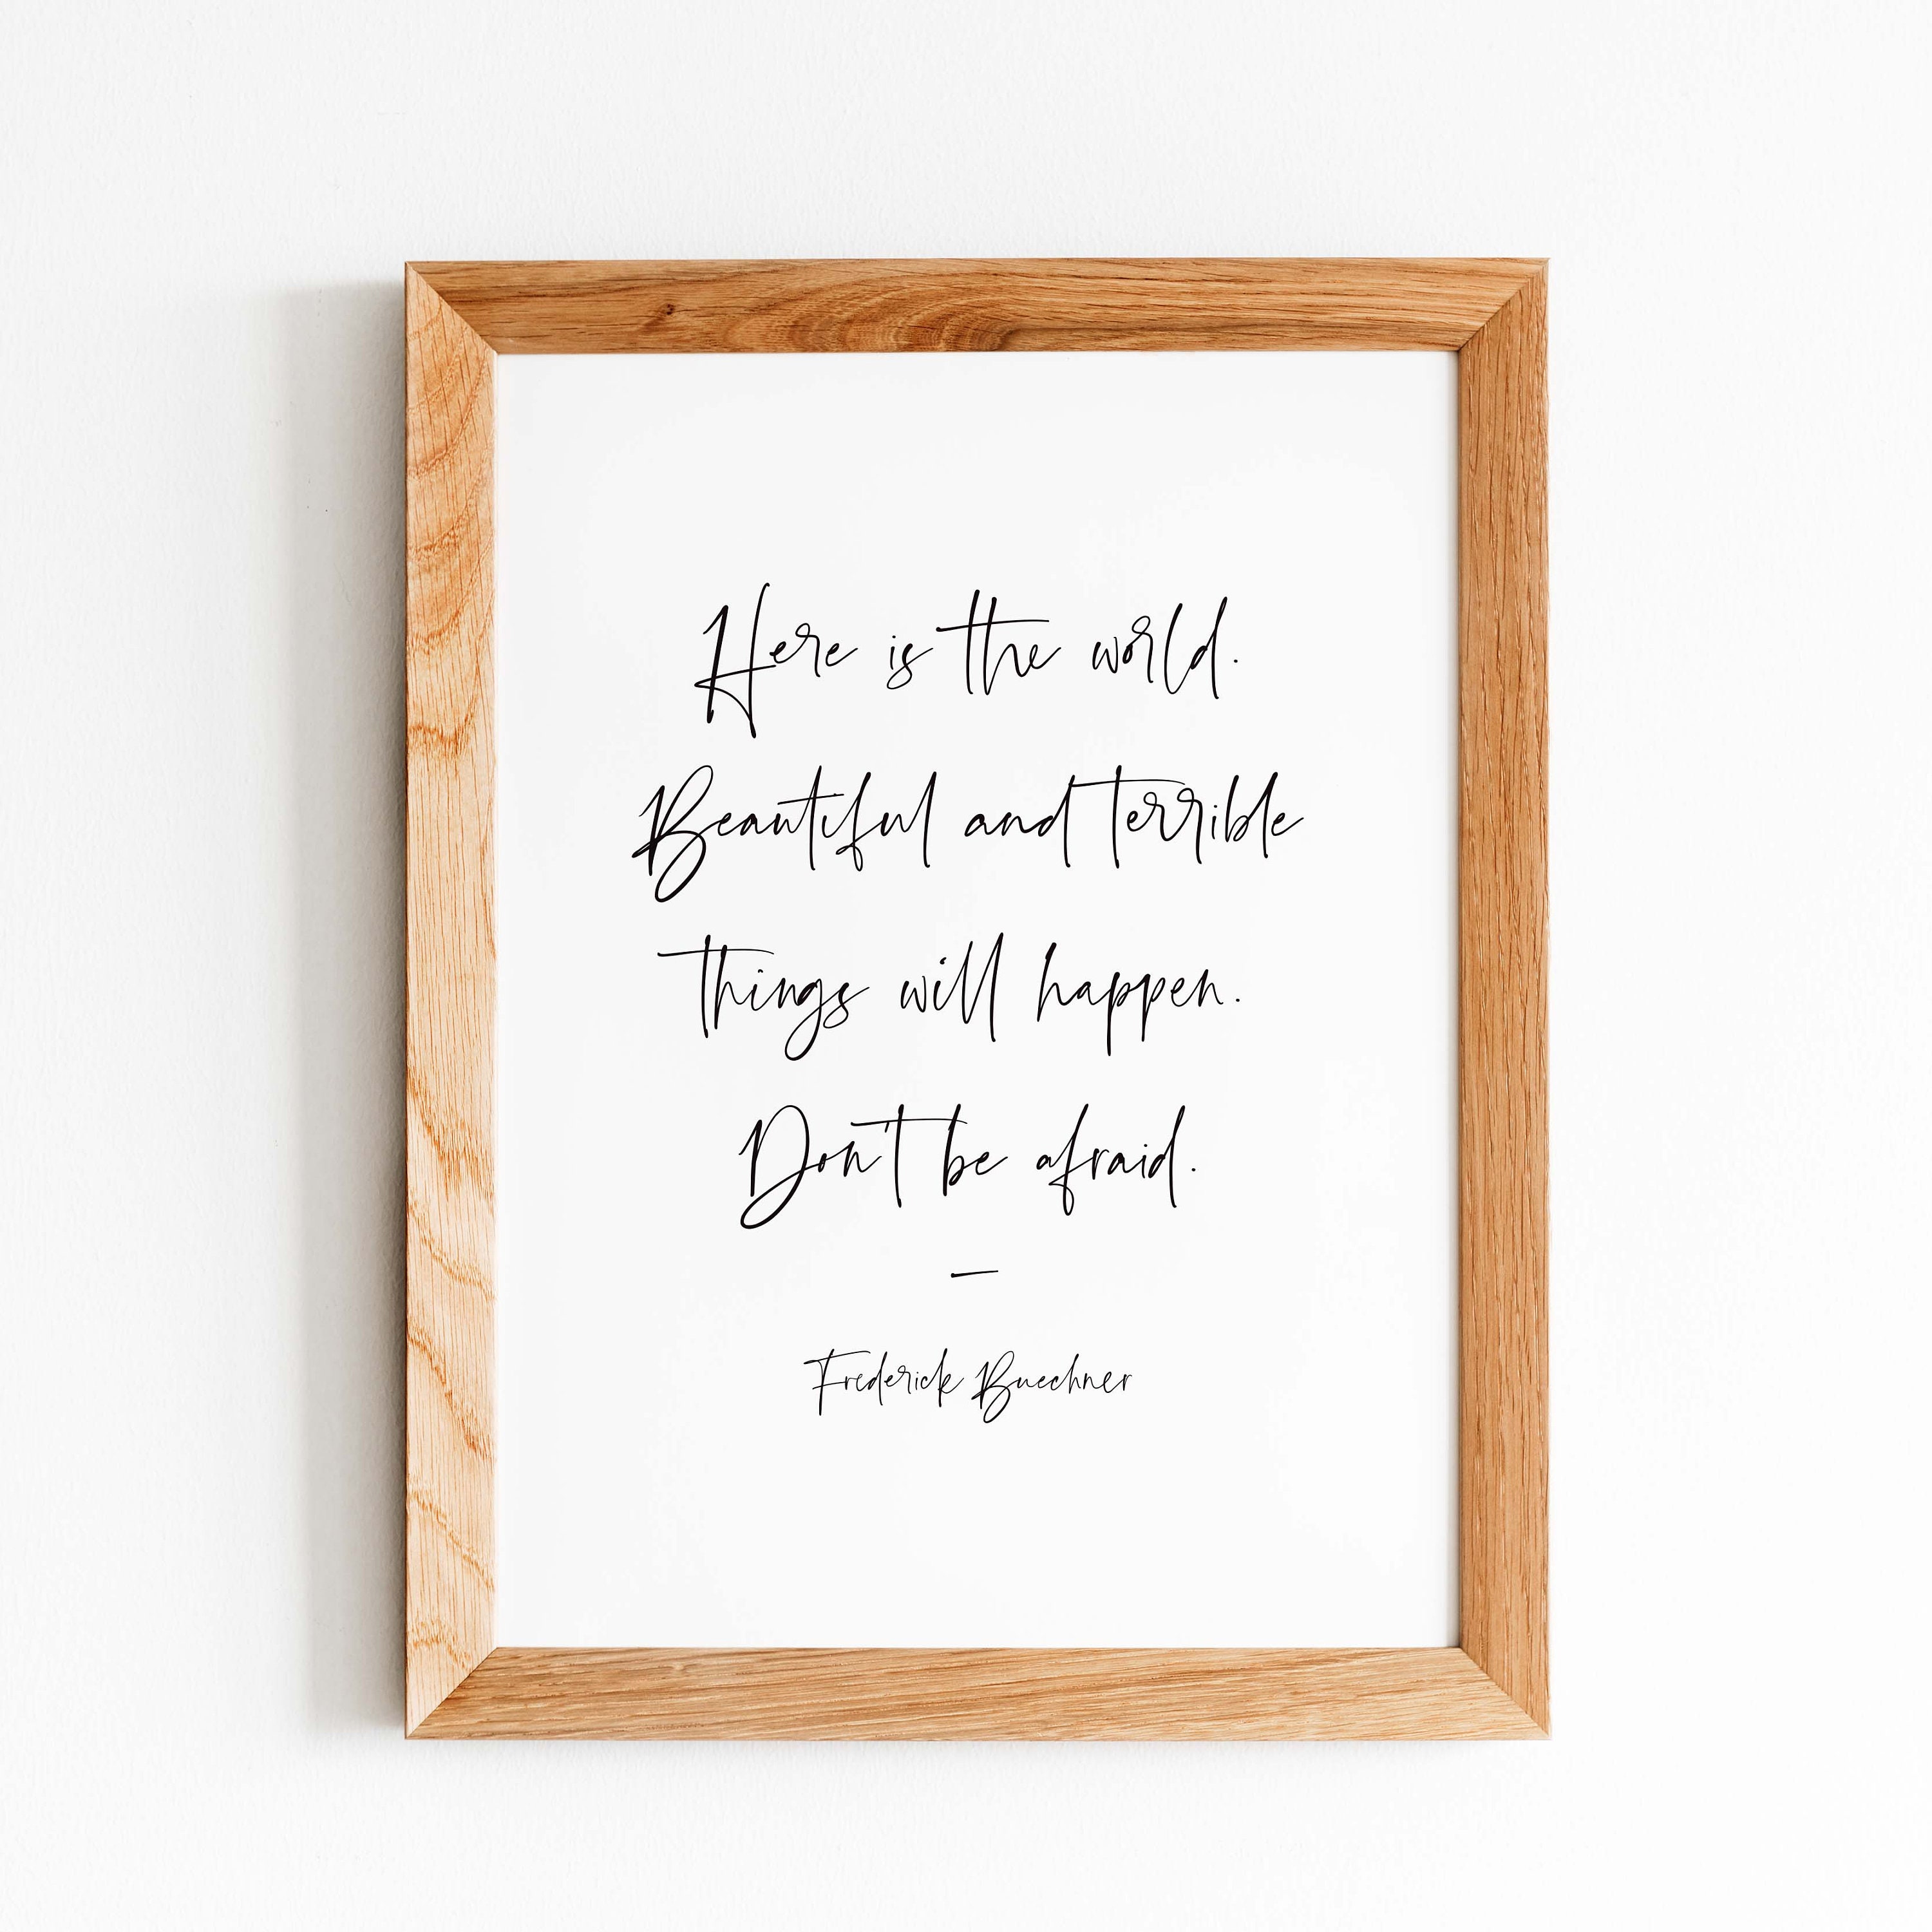 Here is the world.
Beautiful and terrible
things will happen.
Don't be afraid.
—
Frederick Buechner